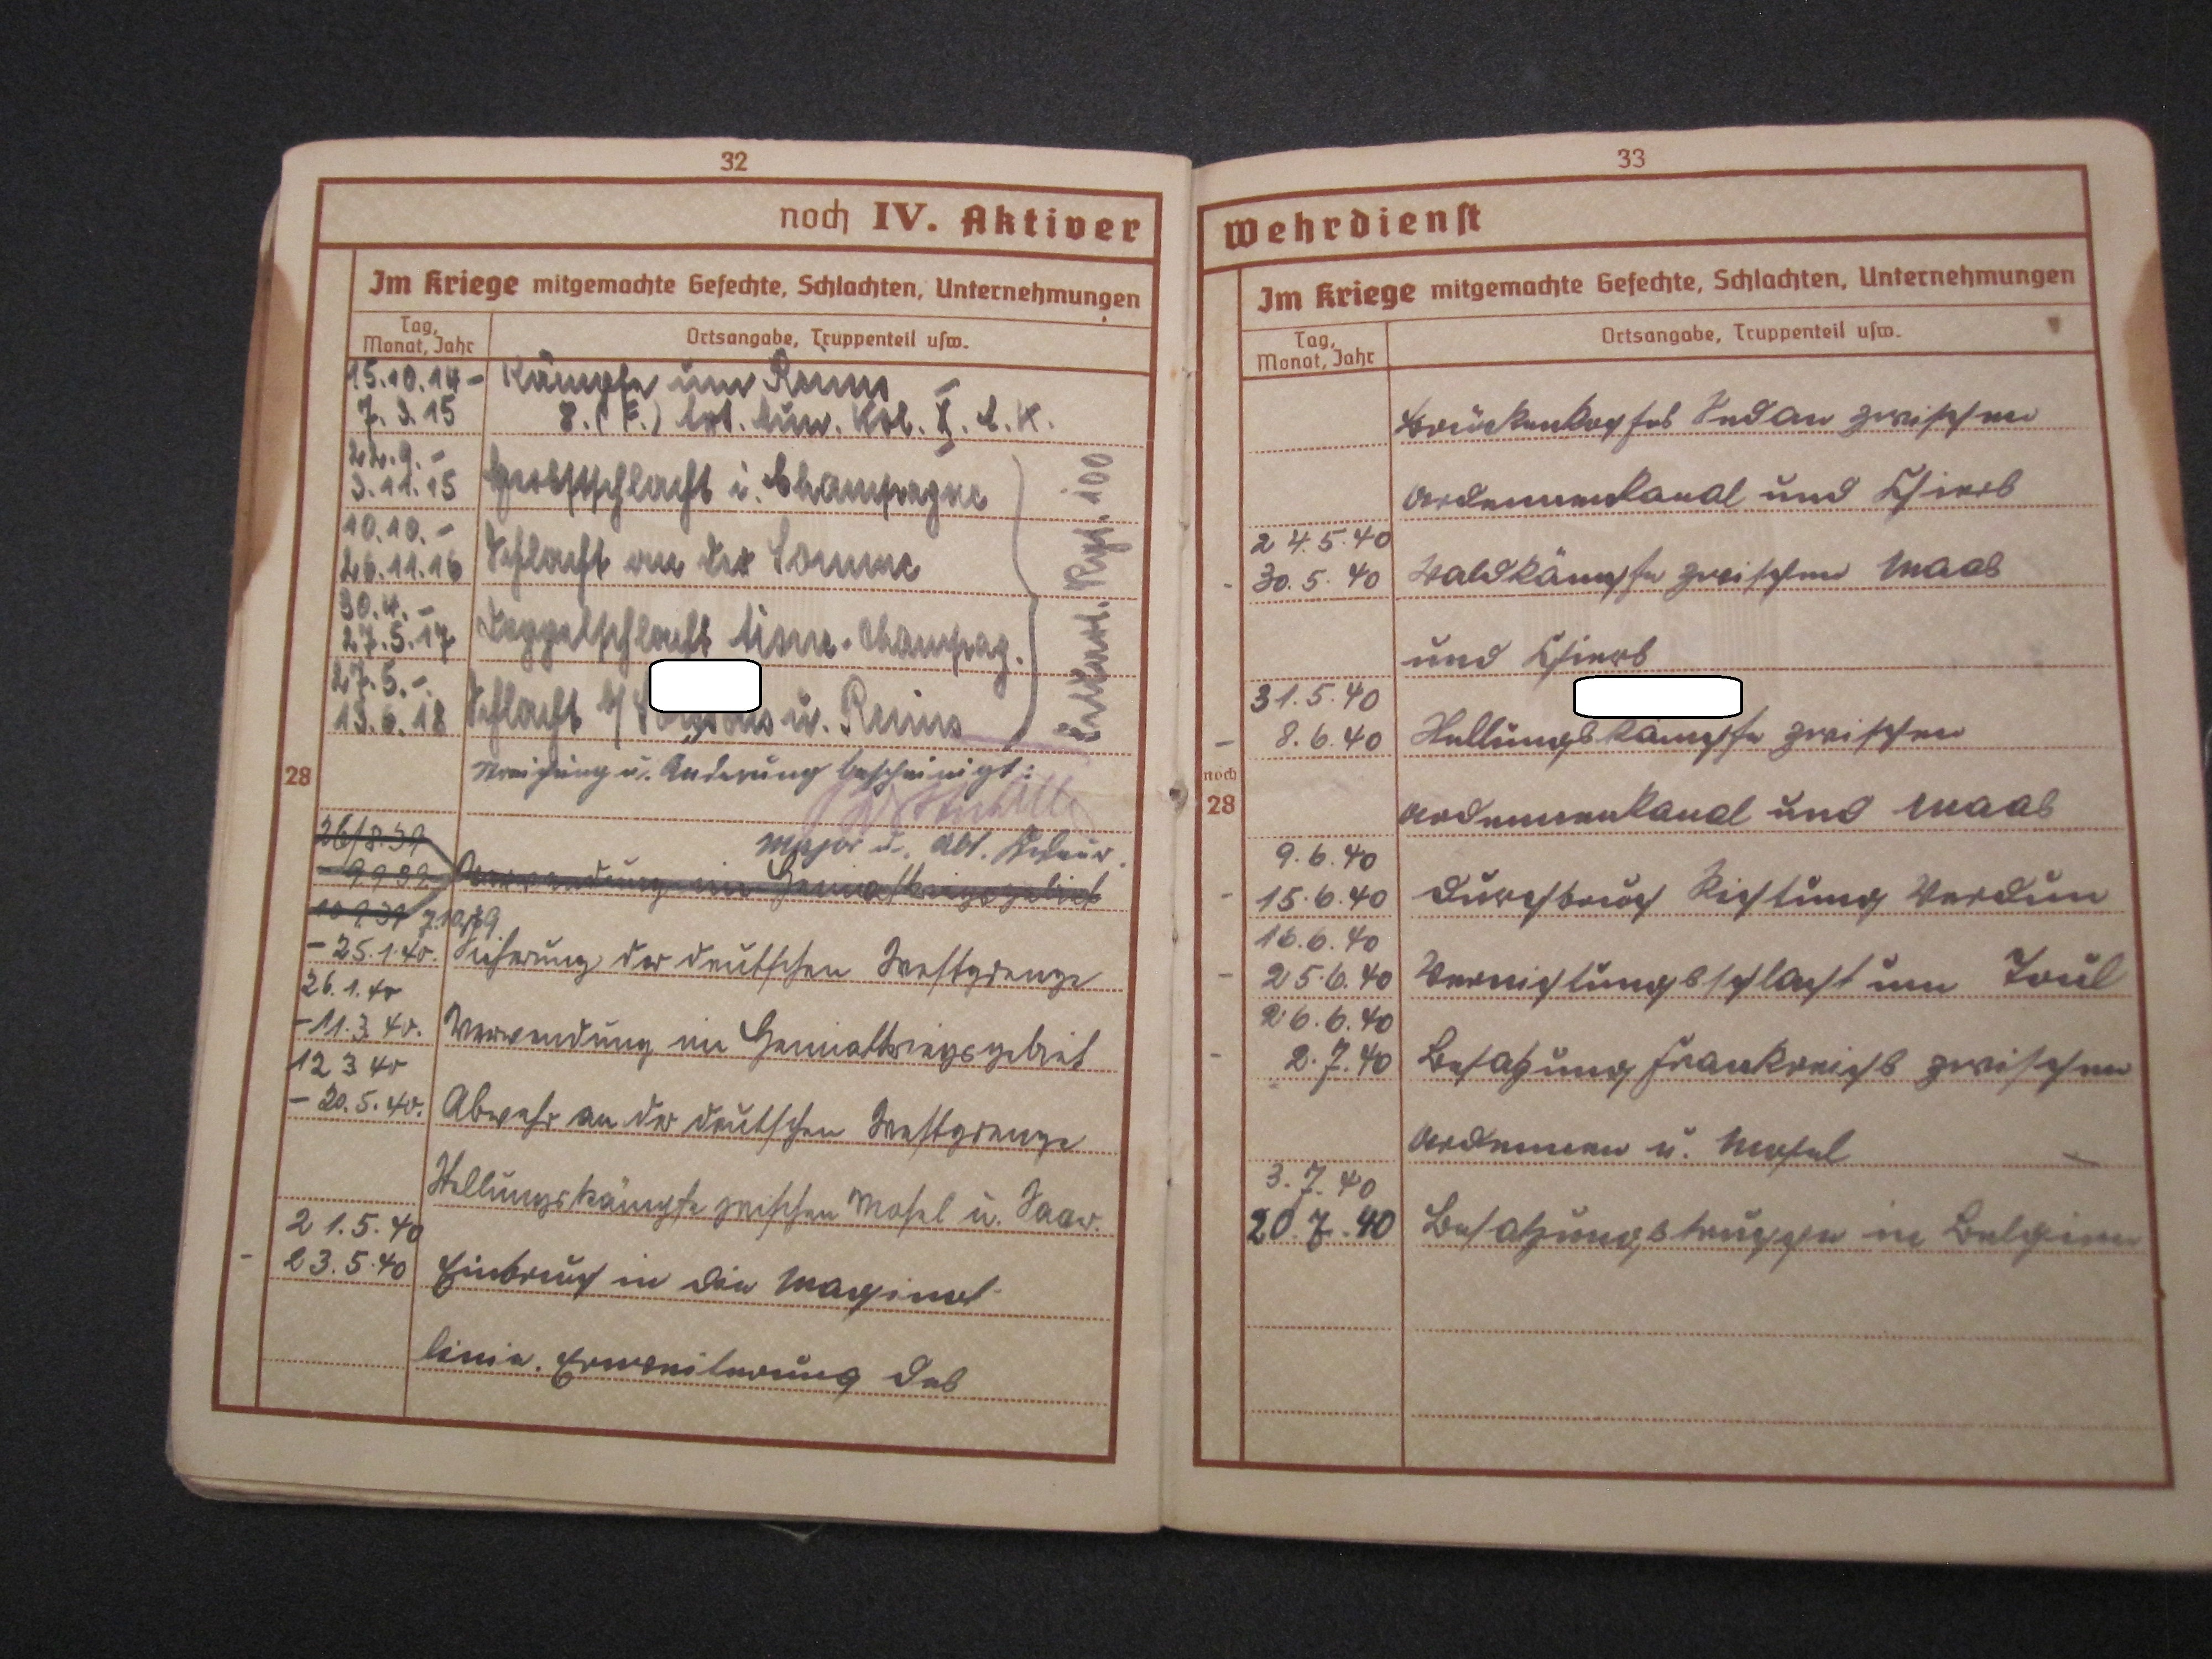 32
noch IV. Aktiver
Im Kriege mitgemachte Gefechte, Schlachten, Unternehmungen
Tag, Monat, Jahr
Ortsangabe, Truppenteil usw.
15.10.14 - Kämpfe um Reims
7.3.15 8. (F.)
22.9. -
3.11.15 Herbstschlacht i. Champagne
10.10. -
26.11.16 Schlacht an der Somme
30.4. -
27.5.17 Doppelschlacht Aisne-Champag.
27.5. -
13.6.18 Schlacht u. Reims
Rgt. 100
28
Streichung u. Änderung bescheinigt:
Major u. Abt. Kdeur.
26/8.39
- 9.9.39 Verwendung im Heimatkriegsgebiet
10.9.39
- 25.1.40. Sicherung der deutschen Westgrenze
26.1.40
- 11.3.40. Verwendung im Heimatkriegsgebiet
12 3 40
- 20.5.40. Abwehr an der deutschen Westgrenze
Stellungskämpfe zwischen Mosel u. Saar.
21.5.40
- 23.5.40 Einbruch in die Maginot
linie. Erweiterung des
33
Wehrdienst
Im Kriege mitgemachte Gefechte, Schlachten, Unternehmungen
Tag, Monat, Jahr
Ortsangabe, Truppenteil usw.
Brückenkopfes Sedan zwischen
Ardennenkanal und Chiers
24.5.40
- 30.5.40 Waldkämpfe zwischen Maas
und Chiers
31.5.40
- 8.6.40 Stellungskämpfe zwischen
noch 28
Ardennenkanal und Maas
9.6.40
- 15.6.40 Durchbruch Richtung Verdun
16.6.40
- 25.6.40 Vernichtungsschlacht um Toul
26.6.40
- 2.7.40 Besatzung Frankreichs zwischen
Ardennen u. Mosel
3.7.40
20.7.40 Besatzungstruppe in Belgien